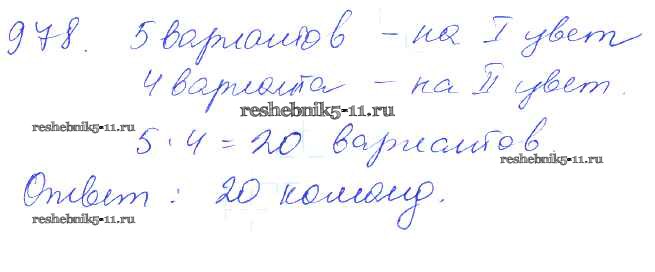 978. 5 вариантов – на I цвет
4 варианта – на II цвет.
reshebnik5-11.ru
reshebnik5-11.ru
5 · 4 = 20 вариантов
reshebnik5-11.ru
Ответ: 20 команд.
reshebnik5-11.ru